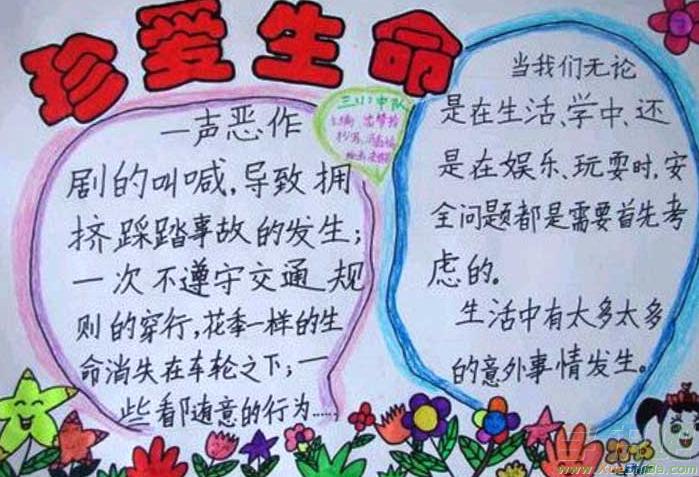 珍爱生命
一声恶作
剧的叫喊，导致拥
挤踩踏事故的发生；
一次不遵守交通规
则的穿行，花季一样的生
命消失在车轮之下；一
些看随意的行为……
三(1)中队
当我们无论
是在生活、学中、还
是在娱乐、玩耍时，安
全问题都是需要首先考
虑的。
生活中有太多太多
的意外事情发生。